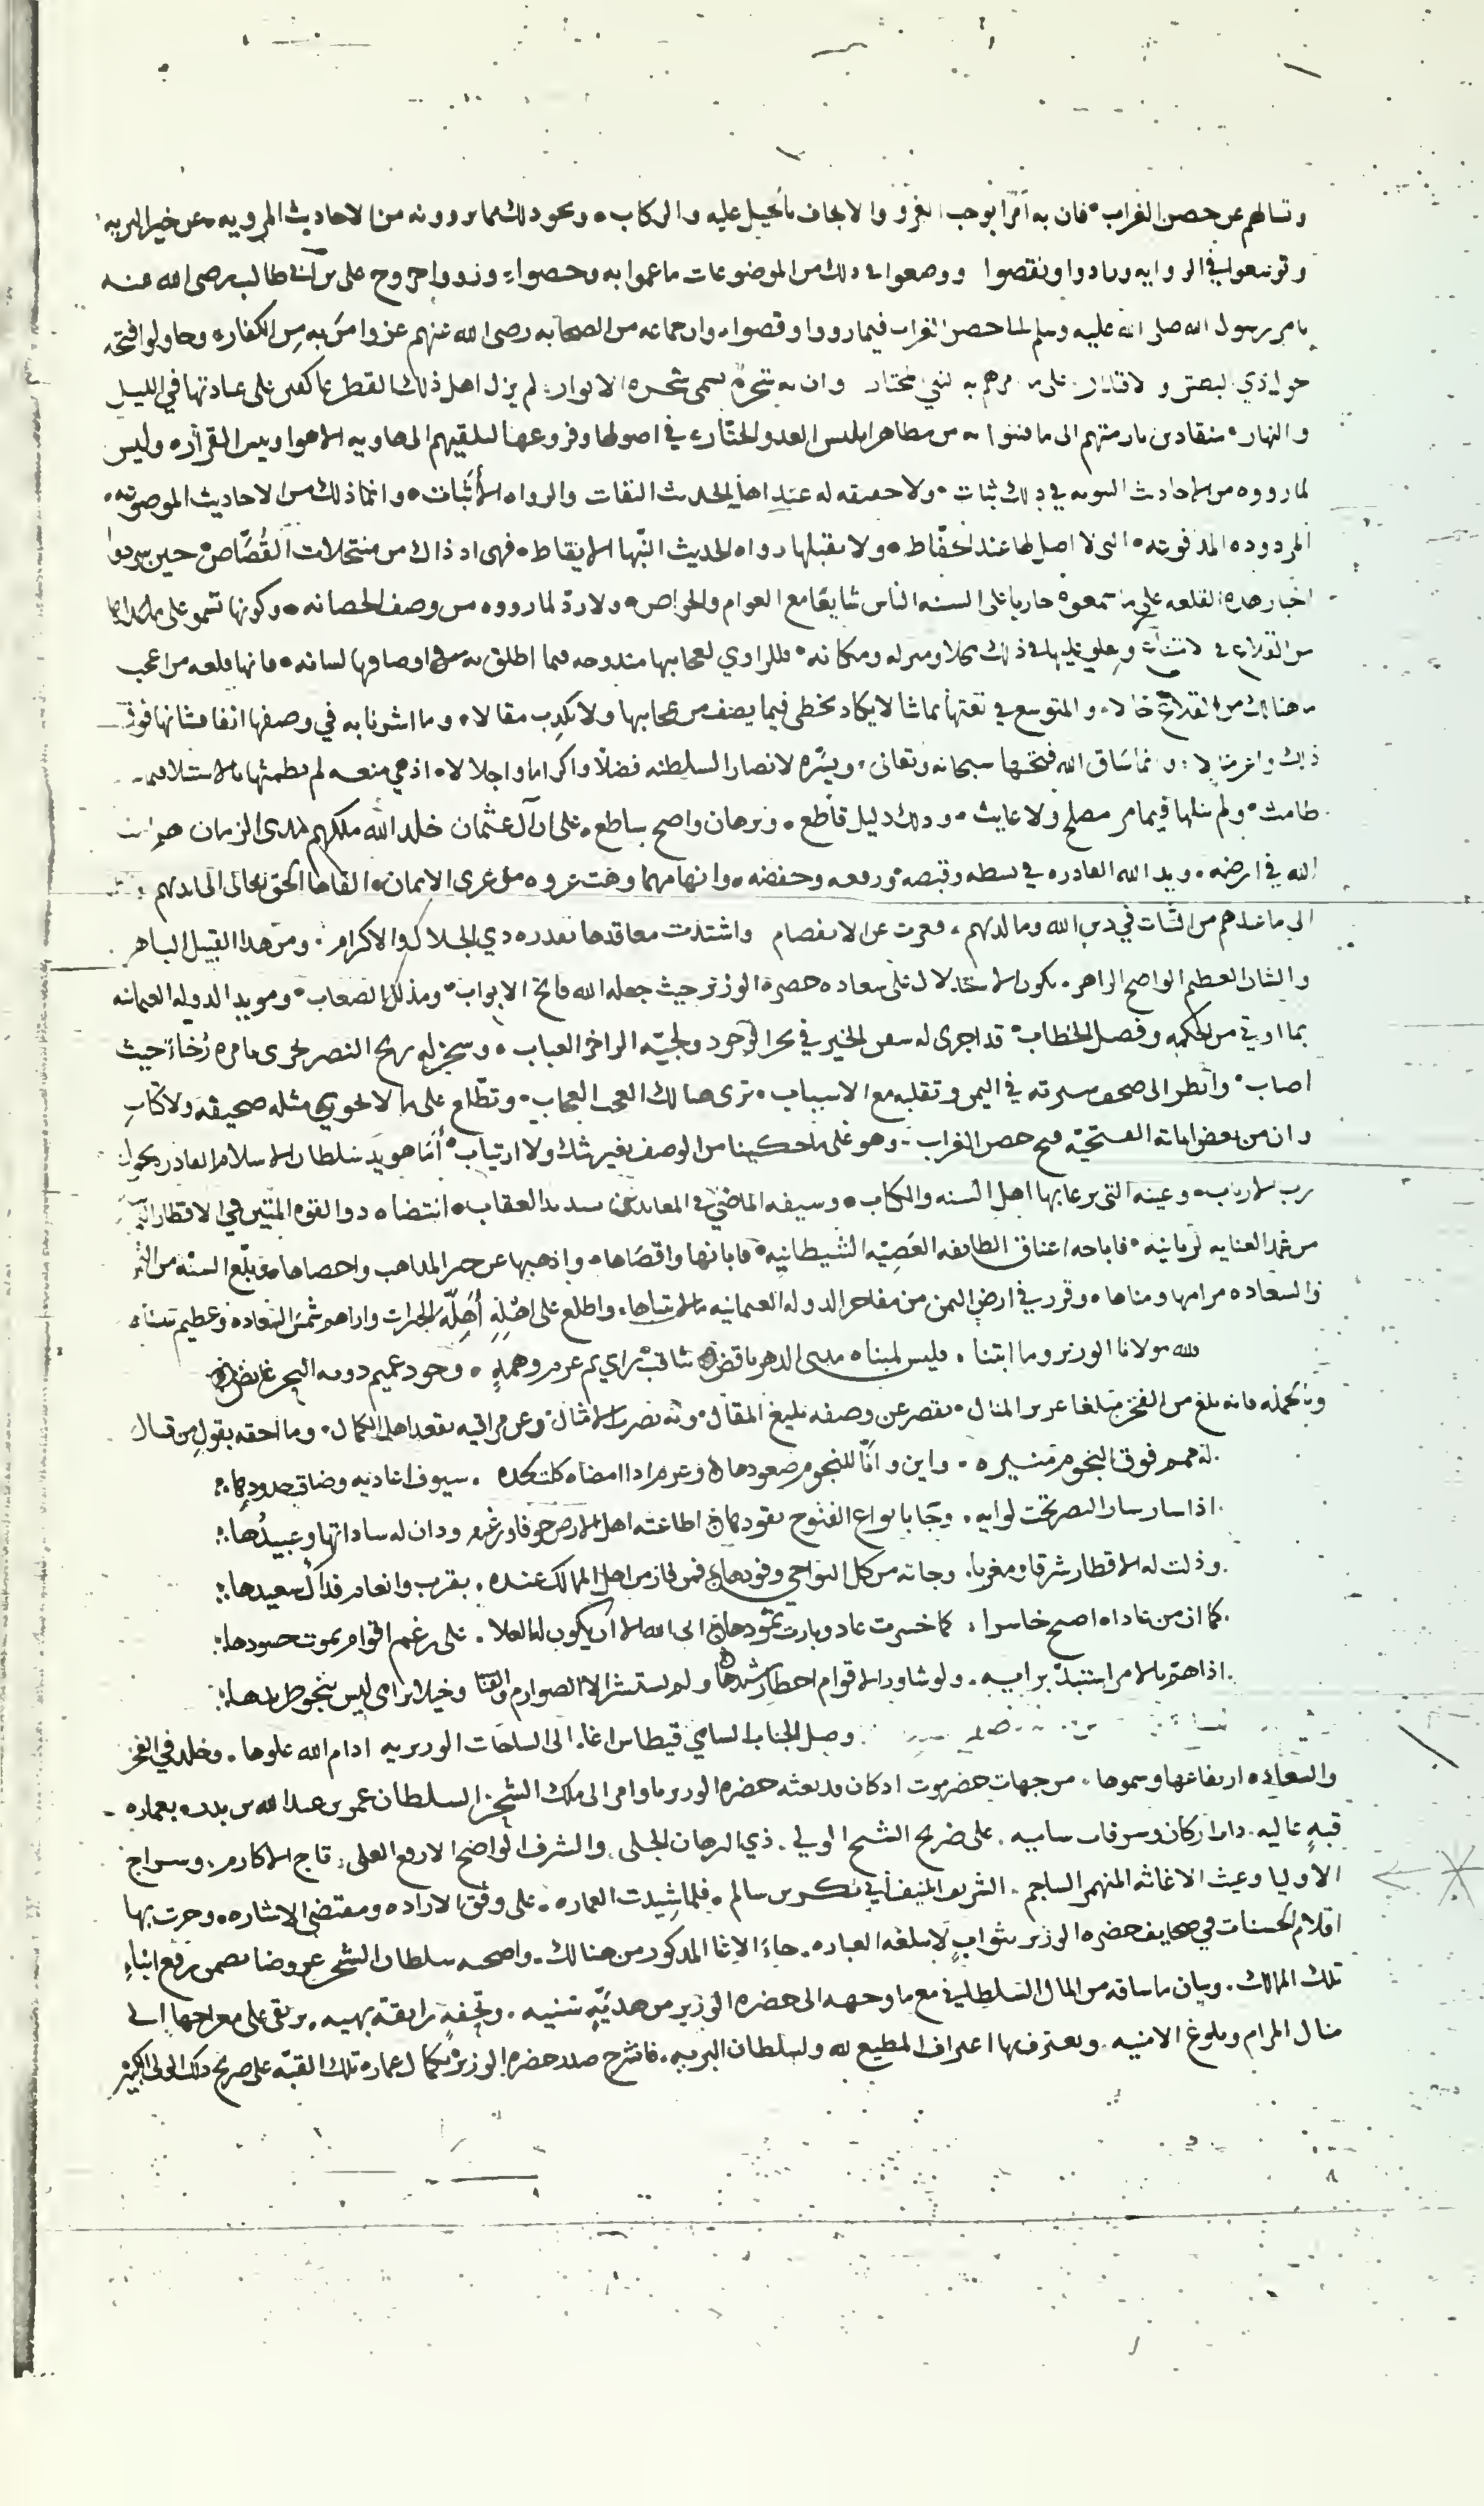 وتسالهم عن حصن الغراب فان به امرا يوجب الغزو والايجاف بالخيل عليه والركاب ونحو ذلك مما يروونه من الاحاديث المرويه عن خير البريه
وتوسعوا في الروايه وزادوا ونقصوا ووضعوا في ذلك من الموضوعات ما عموا به وخصوا ورووا خروج علي بن ابي طالب رضي الله عنه
بامر رسول الله صلى الله عليه وسلم لما حصن الغراب فيما رووا وقصوا وان جماعه من الصحابه رضي الله عنهم غزوا من به من الكفار وحاولوا فتحه
وان به شجرة تسمى شجره الانوار لم يزل اهل ذلك القطر عاكفين على عادتها في الليل
والنهار منقادين بازمتهم الى ما فتنوا به من مظاهر ابليس العدو الختار في اصولها وفروعها ليلقيهم الى هاويه الاهوا وبيس القرار وليس
لما رووه من الاحاديث النبويه في ذلك ثبات ولا حقيقه له عند اهل الحديث الثقات والرواه الأثبات وانما ذلك من الاحاديث الموضوعه
المردوده المدفوعه التي لا اصل لها عند الحفّاظ ولا يقبلها رواه الحديث النبّها الايقاظ فهي اذ ذاك من منتحلات القُصّاص حين سردوا
اخبار هذه القلعه على ما سمعوه جاريا على السنه الناس شايعًا مع العوام والخواص ولا ردّ لما رووه من وصف الحصانه وكونها تسمو على
من القلاع في ذلك محلا ومنزله ومكانه فللراوي لعجايبها مندوحه فيما اطلق به من اوصافها لسانه فانها قلعه من اعجب
ما هنالك من القلاع حالا والمتوسع في نعتها بما شا لا يكاد يخطي فيما يصف من عجايبها ولا يكذب مقالا وما اشرنا به في وصفها انفا فشانها فوق
ذلك وانما ساق الله فتحها سبحانه وتعالى ويسّره لانصار السلطنه فضلا واكراما واجلالا اذ هي منعه لم يطمثها بالاستيلا فيما
طامث ولم ينلها فيما مر مصلح ولا عابث وذلك دليل قاطع وبرهان واضح ساطع على ان آل عثمان خلد الله ملكهم مدى الزمان هم امنا
الله في ارضه ويد الله القادره في بسطه وقبضه ورفعه وخفضه وانها مهما وهت عروه من عرى الايمان القاها الحق تعالى الى ايديهم
الى ما عندهم من الثبات في دين الله وما لديهم فعزت عن الانفصام واشتدت معاقدها بقدره ذي الجلال والاكرام ومن هذا القبيل الباهر
والشان العظيم الواضح الزاهر يكون الاستدلال على سعاده حضره الوزير حيث جعله الله فاتح الابواب ومذلل الصعاب ومويد الدوله العثمانيه
بما اوتي من الحكمه وفصل الخطاب قد اجرى له سفن الخير في بحر الوجود ولجته الزاخر العباب وسخر له ريح النصر تجري بامره رُخاءً حيث
اصاب وانظر الى صحف سيرته في اليمن وتقلبه مع الاسباب ترى هنالك العجب العجاب وتطّلع على ما لا تحوي مثله صحيفة ولا كتاب
وان من بعض اياته الفتحيّه فتح حصن الغراب وهو على ما حكينا من الوصف بغير شك ولا ارتياب أما هو يد سلطان الاسلام القادر بحول
رب الارباب وعينه التي يرعا بها اهل السنه والكتاب وسيفه الماضي في المعاندين شديد العقاب انتضاه ذو القوه المتين في الاقطار
من غمد العنايه الربانيه فاباحه اعناق الطايفه العَصِيّه الشيطانيه فابانها واقصاها واذهبها عن حر المذاهب واحصاها وبلّغ السنه من
والسعاده مرامها ومناها وقرر في ارض اليمن من مفاخر الدوله العثمانيه ما لا يتناها واطلع على اهله أهلّة المجرات واراهم شمس السعاده وعظيم سناه
لله مولانا الوزير وما ابتنا فليس لمبناه مدى الدهر ناقض ثاقب راي ثم عزم وهمه وجود عميم دونه البحر غايض
وبالجمله فانه بلغ من الفخر مبلغا عزيز المنال يقصر عن وصفه بليغ المقال وبه تضرب الامثال وعن مراقيه يقعد اهل الكمال وما احقه بقول من قال
له همم فوق النجوم منيره واين وأنّا للنجوم صعودها وعزم اذا امضاه كلت لحده سيوف اعاديه وضاق حدودها
اذا سار سار النصر تحت لوايه وجا بانواع الفتوح يقودها اطاعته اهل الارض خوفا ورغبه ودان له ساداتها وعبيدُها
وذلت له الاقطار شرقا ومغربا وجاته من كل النواحي وفودها فمن فاز من اهل الممالك عنده بقرب وانعام فذاك سعيدها
كما ان من عاداه اصبح خاسرا كما خسرت عاد وبارت ثمودها ابى الله الا ان يكون لنا العلا على رغم اقوام يموت حسودها
اذا هم بالامر استبدّ برايه ولو شاور الاقوام اخطا رشيدها ولم يستشر الا الصوارم والقنا وخيلا ترامى ليس ينجو طريدها
وصل الجناب السامي قيطاس اغا الى الساحات الوزيريه ادام الله علوها وخلد في الفخر
والسعاده ارتفاعها وسموها من جهات حضرموت اذ كان قد بعثه حضره الوزير باوامر الى ملك الشحر السلطان عمر بن عبد الله بن بدر بعماره
قبه عاليه ذات اركان وشرفات ساميه على ضريح الشيخ الولي ذي البرهان الجلي والشرف الواضح الارفع العلي تاج الاكارم وسراج
الاوليا وغيث الاغاثه المنهمر الساجم الشريف المنيف ابي بكر بن سالم فلما شيدت العماره على وفق الاراده ومقتضى الاشاره وجرت بها
اقلام الحسنات في صحايف حضره الوزير بثواب لا تبلغه العباره جاءَ الاغا المذكور من هنالك واصحبه سلطان الشحر عروضا تضمن رفع انباء
تلك الممالك وبيان ما ساقه من المال السلطاني مع ما وجهه الى حضره الوزير من هديّة سنيه وتحفه رايقة بهيه يرتقي على معارجها الى
منال المرام وبلوغ الامنيه ويعترف بها اعتراف المطيع لله ولسلطان البريه فانشرح صدر حضره الوزير بكمال عماره تلك القبّه على ضريح ذلك الولي الكبير